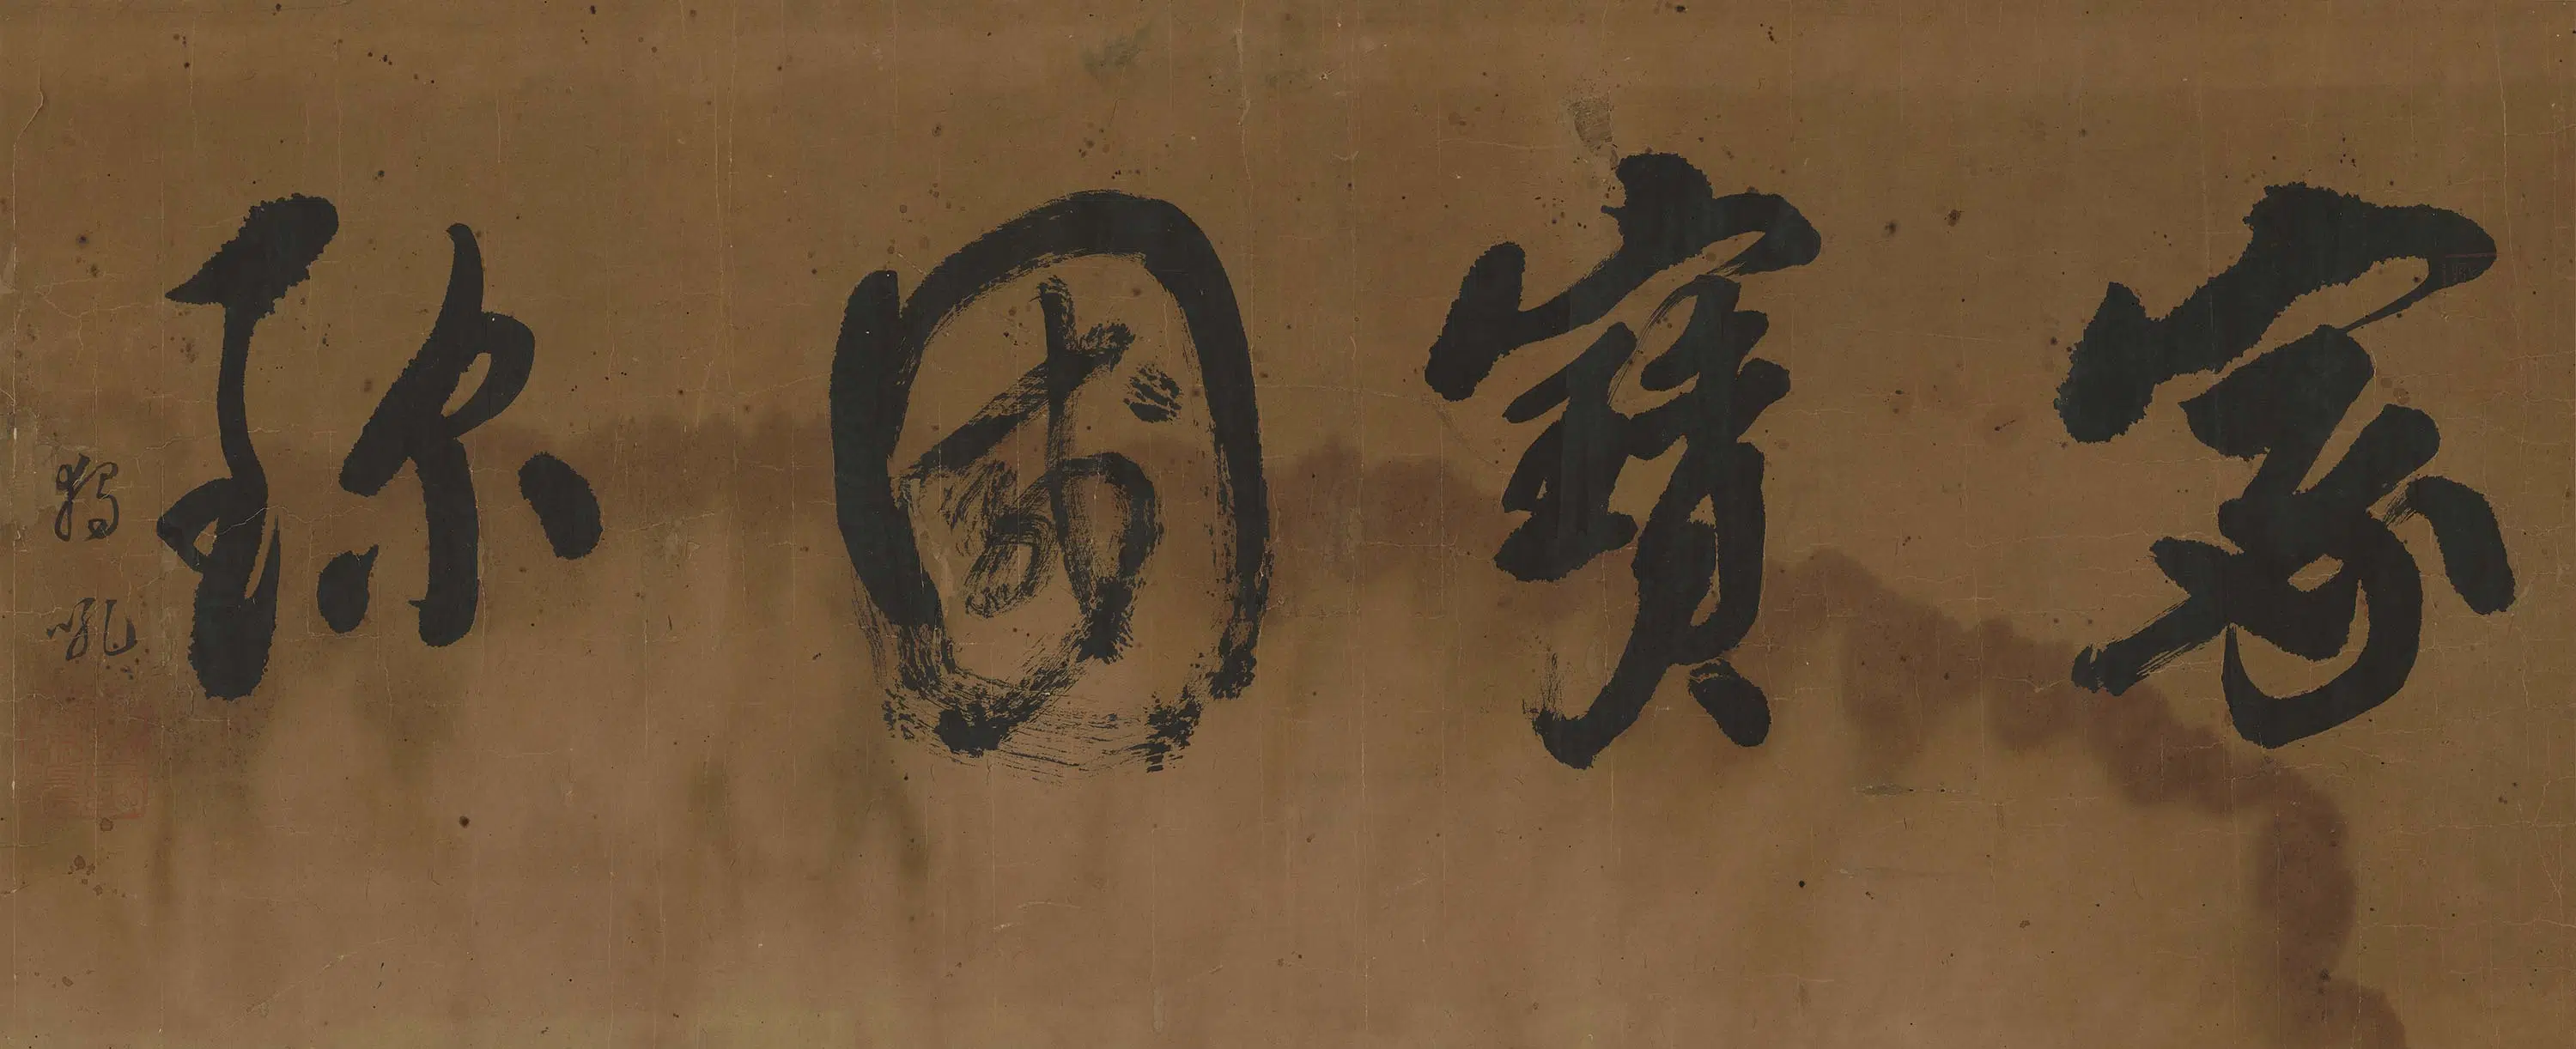 家寶國珎
獨吼